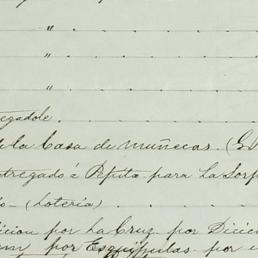 " . . . . . . . . . . .
" . . . . . . . . . . .
" . . . . . . . . . . .
egadole . . . . . . . . .
e la Casa de muñecas. (G
tregado á Pepita para La Sorp
o - (Loteria) . . . . . . .
icion por La Cruz por Dicie
em por Esquipulas por